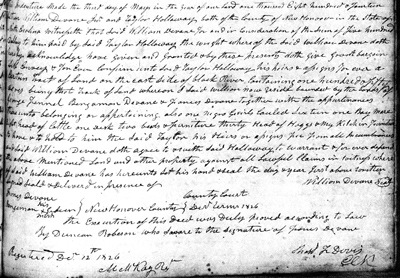 Indenture made the third day of May in the year of our Lord one thousand Eight hundred & fourteen
William Devane Jnr and Taylor Holloway both of the County of New Hanover in the State of
North Carolina Witnesseth that Said William Devane for and in Consideration of the Sum of five hundred
to him paid by Said Taylor Holloway the receipt whereof the Said William Devane doth
hereby acknowledge have given and Granted & by these presents doth Give Grant bargain
& Confirm unto Said Taylor Holloway his heirs & assigns for ever a
certain tract of Land on the east side of black River Containing one hundred & fifty
acres being that tract of Land whereon I Said William now reside bounded by the lands of
George Fennel Benjamin Devane & James Devane together with the appurtenances
thereunto belonging or appertaining also one Negro
of Cattle one desk two beds & furniture thirty Head of Hogs & my Kitchen furniture
to have & to hold to him the Said Taylor his Heirs or assigns for ever
Said William Devane doth agree to & with Said Holloway to warrant & for ever defend
the above Mentioned Land and other property against all Lawful Claims in Witness whereof
Said William Devane has hereunto Set his hand & Seal the day & year first above written
Signed Seald & deliverd in presence of William Devane Seal
Devane
Benjamin Lewis New Hanover County County Court Decr Term 1826
his mark
the Execution of this Deed was Duly proved according to Law
By Duncan Robeson who swore to the signature of James Devane
Registered Decr 12th 1826
McKay Rr